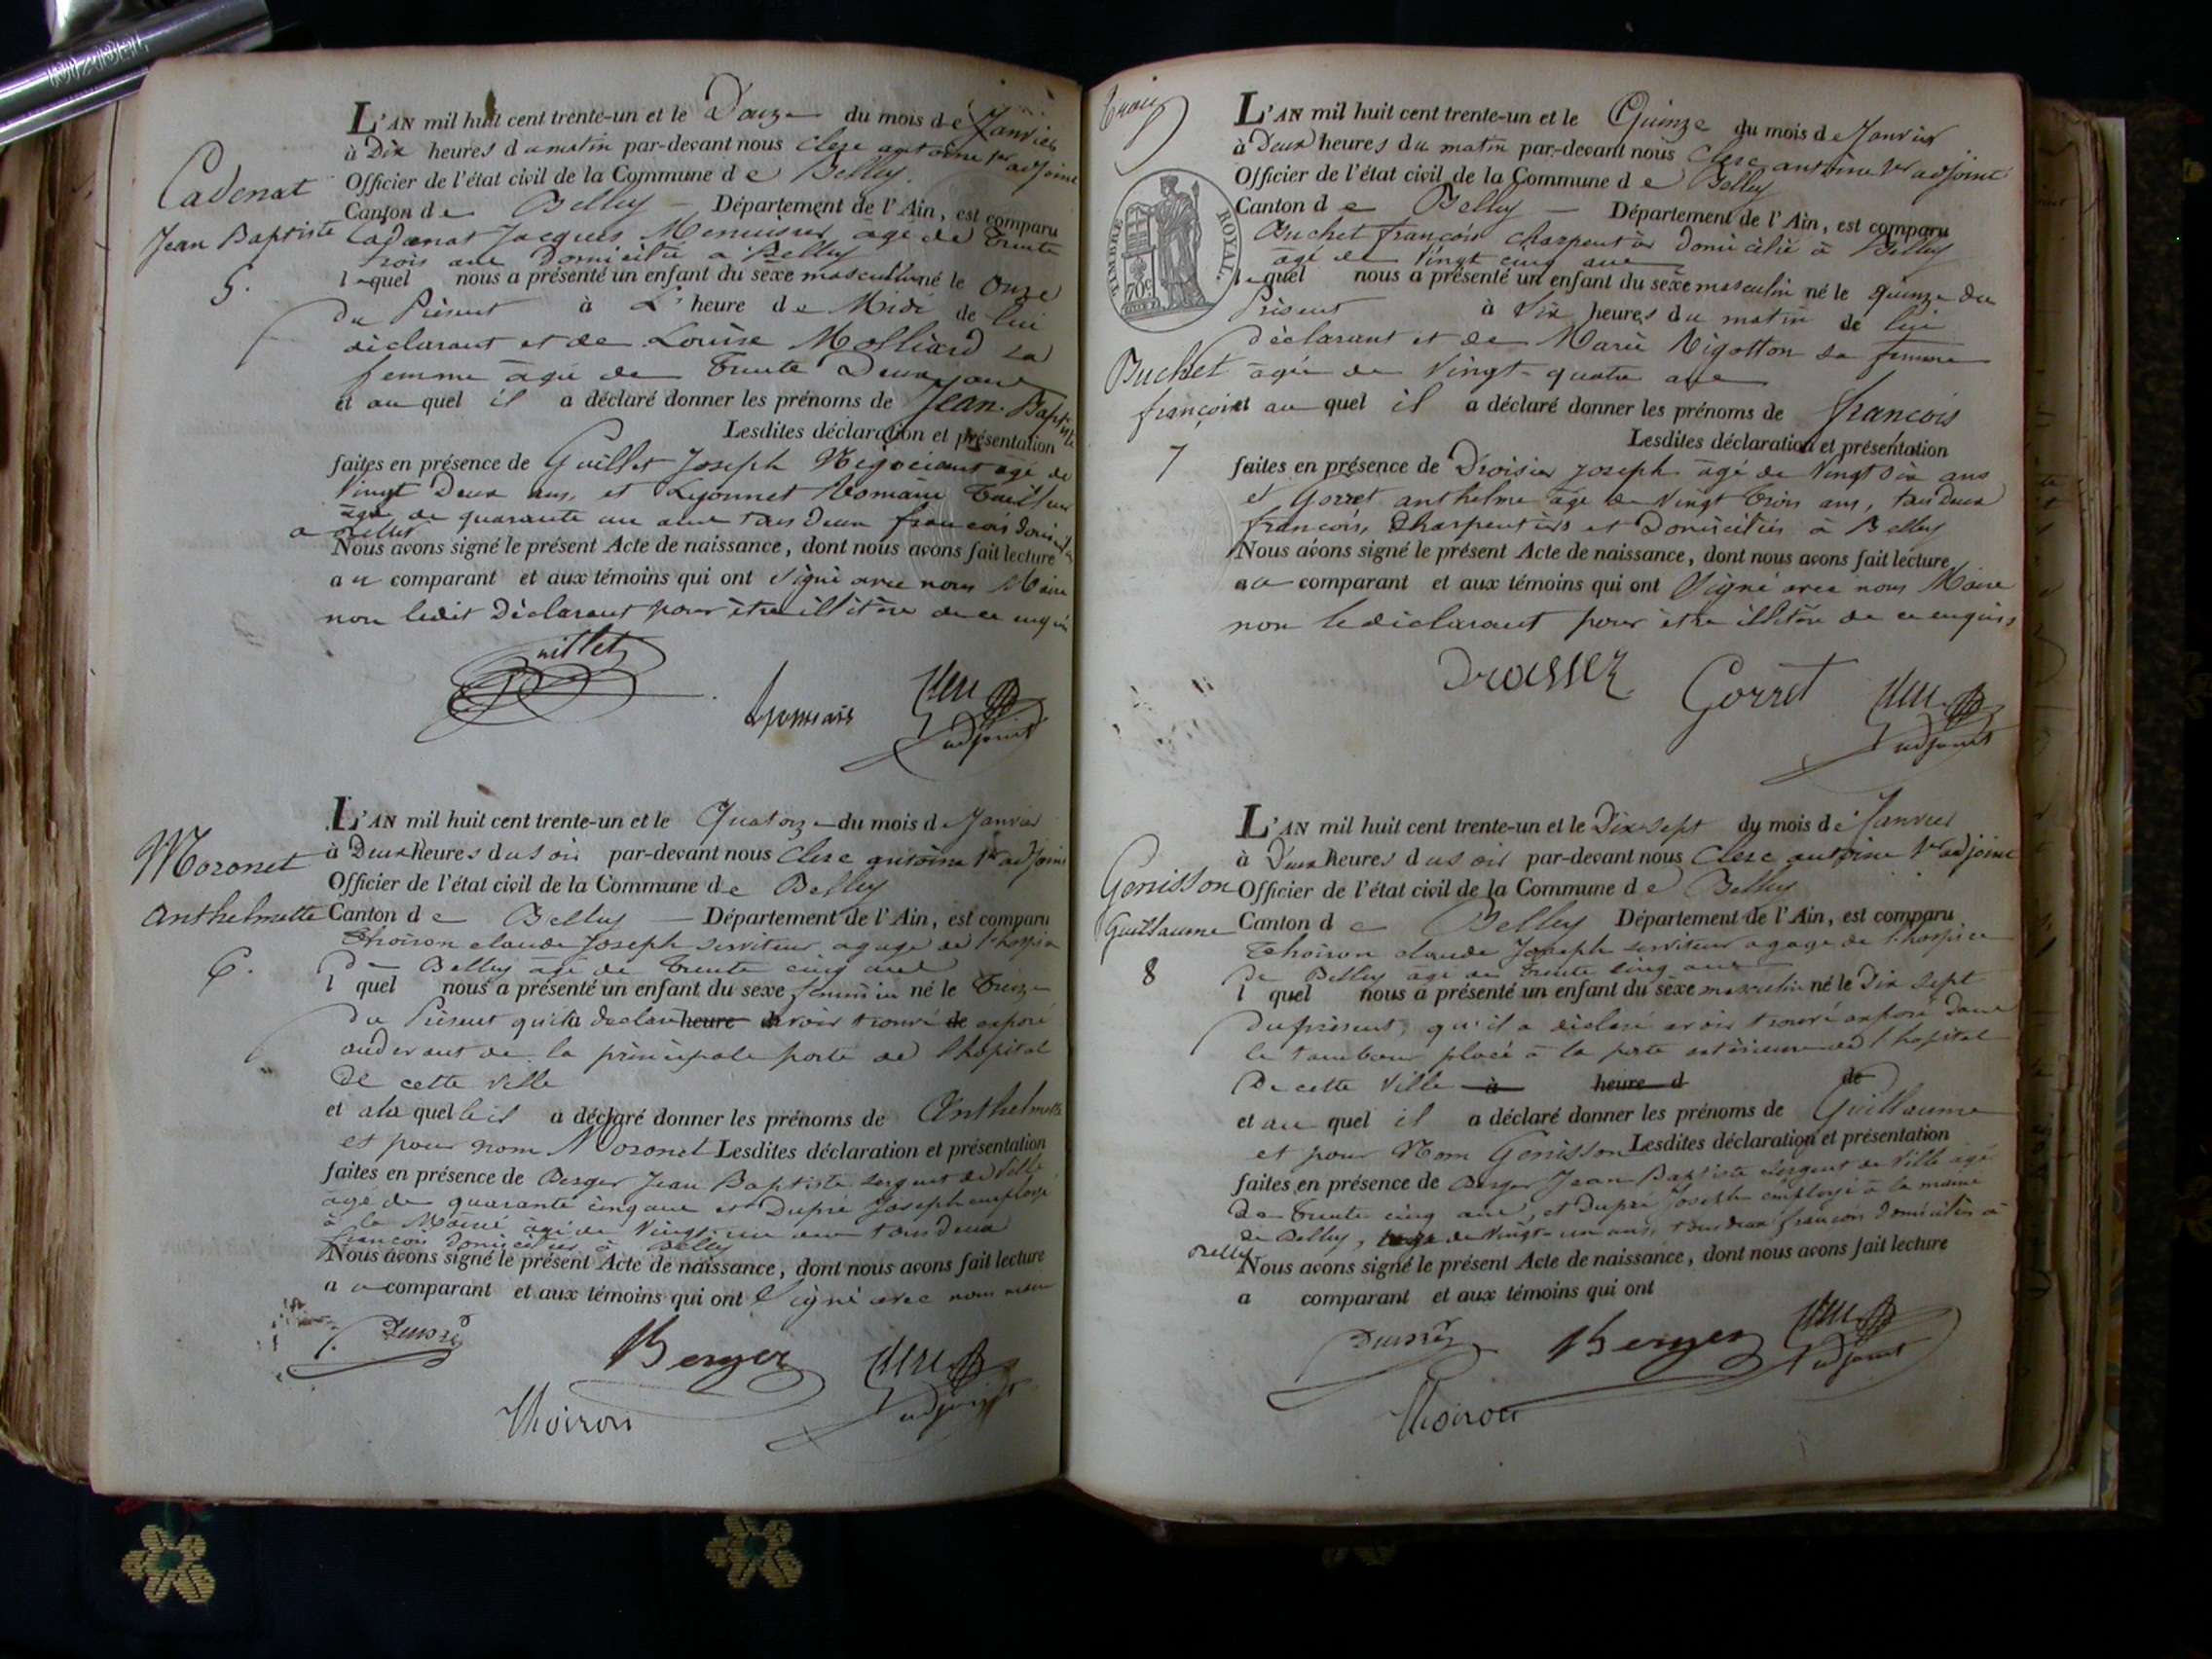 L'AN mil huit cent trente-un et le Douze du mois de Janvier
à Dix heures du matin par-devant nous Clerc antoine 1er adjoint
Officier de l'état civil de la Commune de Belley.
Cadenat
Jean Baptiste
5.
Canton de Belley Département de l'Ain, est comparu
Cadenat Jacques Menuisier age de Trente
trois ans domicilié à Belley
lequel nous a présenté un enfant du sexe masculin né le Onze
du Présent à L' heure de Midi de lui
déclarant et de Louise Molliard sa
femme agée de Trente Deux ans
et au quel il a déclaré donner les prénoms de Jean Baptiste
Lesdites déclaration et présentation
faites en présence de Guillet Joseph Négociant agé de
Vingt Deux ans, et Lyonnet Romain Tailleur
age de quarante un ans tous deux francois domiciliés
a Belley
Nous avons signé le présent Acte de naissance, dont nous avons fait lecture
au comparant et aux témoins qui ont signé avec nous Maire
non ledit Déclarant pour être illitéré de ce enquis
Guillet
Clerc
adjoint
L'AN mil huit cent trente-un et le Quatorze du mois de Janvier
à Deux heures du soir par-devant nous Clerc antoine 1er adjoint
Officier de l'état civil de la Commune de Belley
Moronet
Anthelmette
6.
Canton de Belley Département de l'Ain, est comparu
Thoiron claude Joseph serviteur a gage de l'hospice
De Belley âgé de Trente cinq ans
l quel nous a présenté un enfant du sexe feminin né le Treize
du Présent qu'il a declaré heure avoir trouvé de exposé
au devant de la principale porte de l'hopital
De cette ville
et a la quelle il a déclaré donner les prénoms de Anthelmette
et pour nom Moronet Lesdites déclaration et présentation
faites en présence de Berger Jean Baptiste sergent de Ville
âgé de quarante cinq ans et Dupré Joseph employé
à la Mairie âgé de Vingt-un ans tous deux
francois domiciliés à Belley
Nous avons signé le présent Acte de naissance, dont nous avons fait lecture
au comparant et aux témoins qui ont Signé avec nous maire
Dupré
Berger
Clerc
adjoint
Thoiron
TIMBRE ROYAL.
70c
L'AN mil huit cent trente-un et le Quinze du mois de Janvier
à Deux heures du matin par-devant nous Clerc antoine 1er adjoint
Officier de l'état civil de la Commune de Belley
Canton de Belley Département de l'Ain, est comparu
Buchet françois Charpentier domicilié à Belley
âgé de Vingt cinq ans
lequel nous a présenté un enfant du sexe masculin né le quinze du
Présent à Six heures du matin de lui
déclarant et de Marie Vigotton sa femme
Buchet
françois
7
âgée de Vingt-quatre ans
et au quel il a déclaré donner les prénoms de francois
Lesdites déclaration et présentation
faites en présence de Droisier Joseph âgé de Vingt six ans
et Gorret anthelme âgé de Vingt Trois ans, tous deux
francois, Charpentiers et Domiciliés à Belley
Nous avons signé le présent Acte de naissance, dont nous avons fait lecture
au comparant et aux témoins qui ont Signé avec nous Maire
non le déclarant pour être illitéré de ce enquis
Gorret
Clerc
adjoint
L'AN mil huit cent trente-un et le Dix sept du mois de Janvier
à Deux heures du soir par-devant nous Clerc antoine 1er adjoint
Genisson
Guillaume
8
Officier de l'état civil de la Commune de Belley
Canton de Belley Département de l'Ain, est comparu
Thoiron claude Joseph serviteur a gage de l'hospice
De Belley âgé de Trente cinq ans
l quel nous a présenté un enfant du sexe masculin né le Dix sept
du présent, qu'il a déclaré avoir trouvé exposé dans
le tambour placé à la porte extérieure de l'hopital
De cette Ville à heure d de
et au quel il a déclaré donner les prénoms de Guillaume
et pour Nom Genisson Lesdites déclaration et présentation
faites en présence de Berger Jean Baptiste Sergent de Ville agé
De Trente cinq ans, et Dupré Joseph employé à la mairie
de Belley, de Vingt-un ans, tous deux francois domiciliés à
Belley
Nous avons signé le présent Acte de naissance, dont nous avons fait lecture
a comparant et aux témoins qui ont
Dupré
Berger
Clerc
adjoint
Thoiron